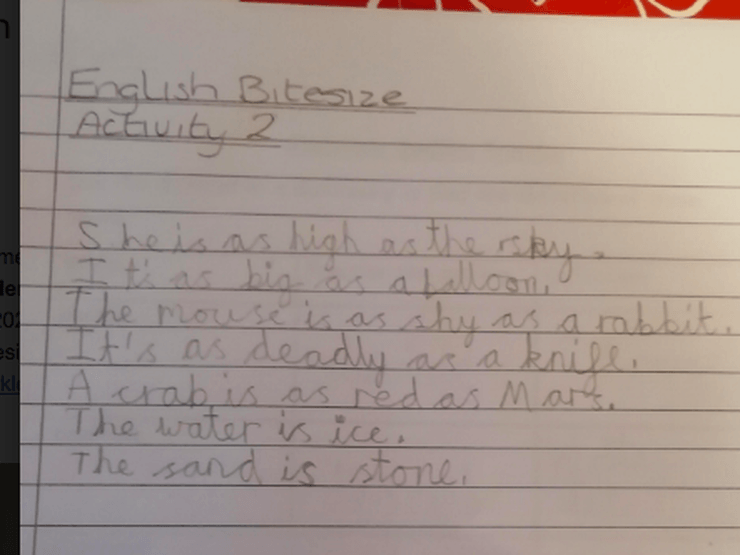 English Bitesize
Activity 2
She is as high as the sky.
It's as big as a balloon.
The mouse is as shy as a rabbit.
It's as deadly as a knife.
A crab is as red as Mars.
The water is ice.
The sand is stone.